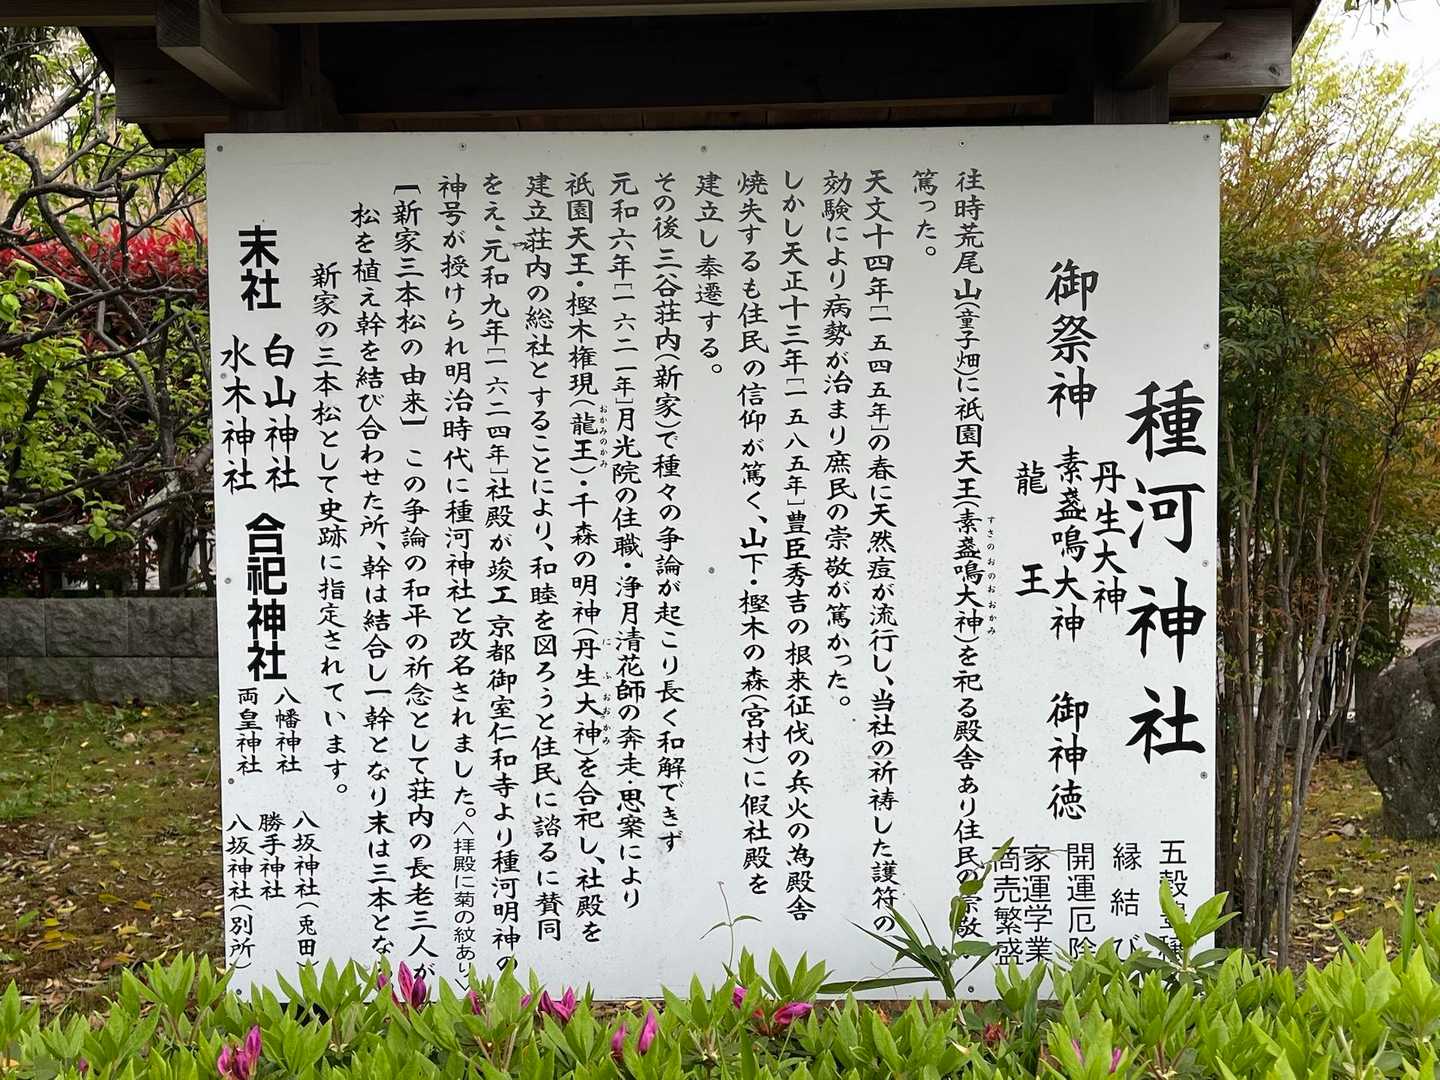 種河神社
御祭神
丹生大神
素盞嗚大神
龍王
御神徳
五穀豊穣
縁結び
開運厄除
家運学業
商売繁盛
往時荒尾山(童子畑)に祇園天王(素盞嗚大神)を祀る殿舎あり住民の崇敬
すさのおのおおかみ
篤った。
天文十四年[一五四五年]の春に天然痘が流行し、当社の祈祷した護符の
効験により病勢が治まり庶民の崇敬が篤かった。
しかし天正十三年[一五八五年]豊臣秀吉の根来征伐の兵火の為殿舎
焼失するも住民の信仰が篤く、山下・樫木の森(宮村)に假社殿を
建立し奉遷する。
その後三谷荘内(新家)で種々の争論が起こり長く和解できず
元和六年[一六二一年]月光院の住職・浄月清花師の奔走思案により
祇園天王・樫木権現(龍王)・千森の明神(丹生大神)を合祀し、社殿を
おかみのかみ
にふおおかみ
建立荘内の総社とすることにより、和睦を図ろうと住民に諮るに賛同
をえ、元和九年[一六二四年]社殿が竣工京都御室仁和寺より種河明神の
神号が授けられ明治時代に種河神社と改名されました。〈拝殿に菊の紋あり〉
【新家三本松の由来】 この争論の和平の祈念として荘内の長老三人が
松を植え幹を結び合わせた所、幹は結合し一幹となり末は三本とな
新家の三本松として史跡に指定されています。
末社
白山神社
水木神社
合祀神社
八幡神社
両皇神社
八坂神社(兎田)
勝手神社
八坂神社(別所)